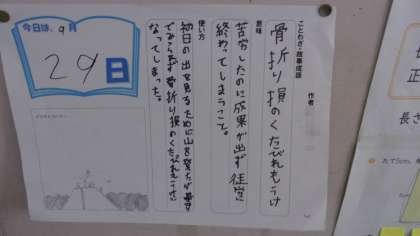 今日は、9月
29日
ことわざ・故事成語
作者
骨折り損のくたびれもうけ
意味
苦労したのに成果が出ず徒労に
終わってしまうこと。
使い方
初日の出を見るために山を登ったが曇り
で骨折り損のくたびれもうけに
なってしまった。
正
長さ